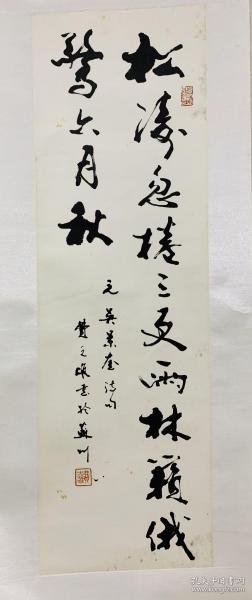 松涛忽卷三更雨林籁俄
惊六月秋
元吴景奎诗句
费之雄书于苏州
孔夫子旧书网